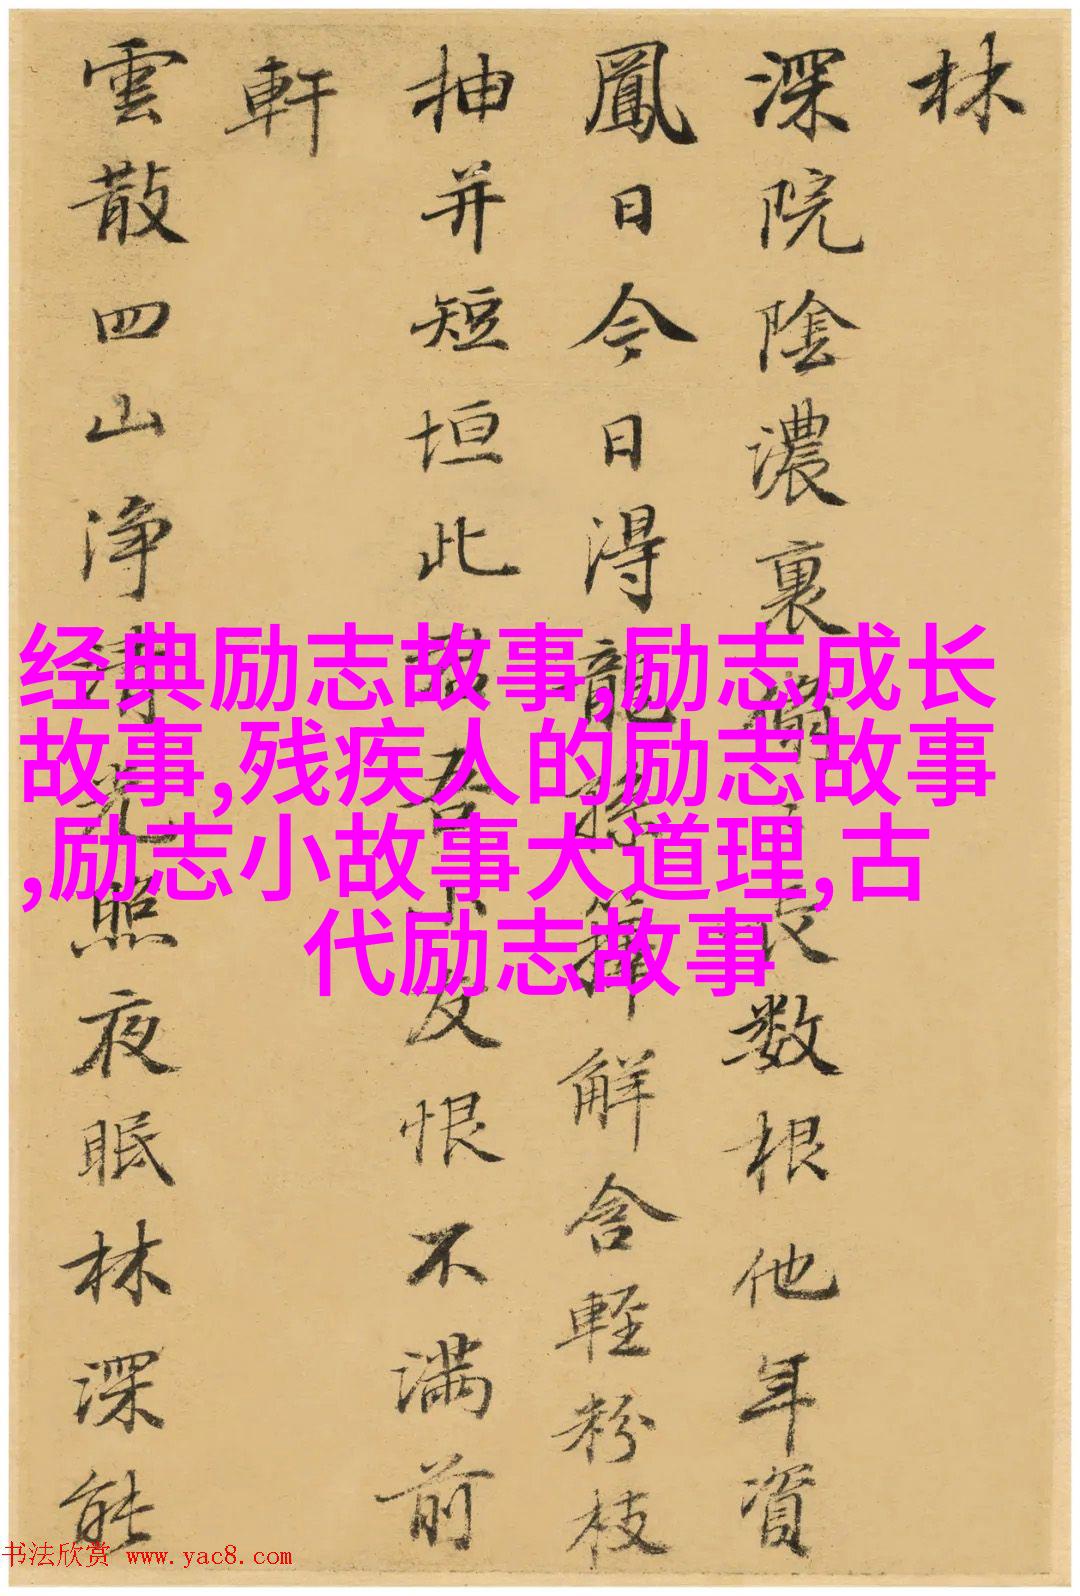 林
深院陰濃裏数根他年資
鳳日今日得龍孫籜解含輕粉枝
抽并短垣此君吾友恨不满前
軒
雲散四山净清光照夜眠林深能
经典励志故事,励志成长
故事,残疾人的励志故事
,励志小故事大道理,古
代励志故事
书法欣赏 www.yac8.com